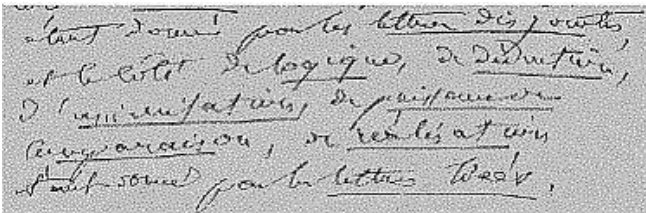 étant donné par les lettres disjointes,
et le côté de logique, de déduction,
d'assimilation, de puissance de
comparaison, de réalisation
étant donné par les lettres liées.